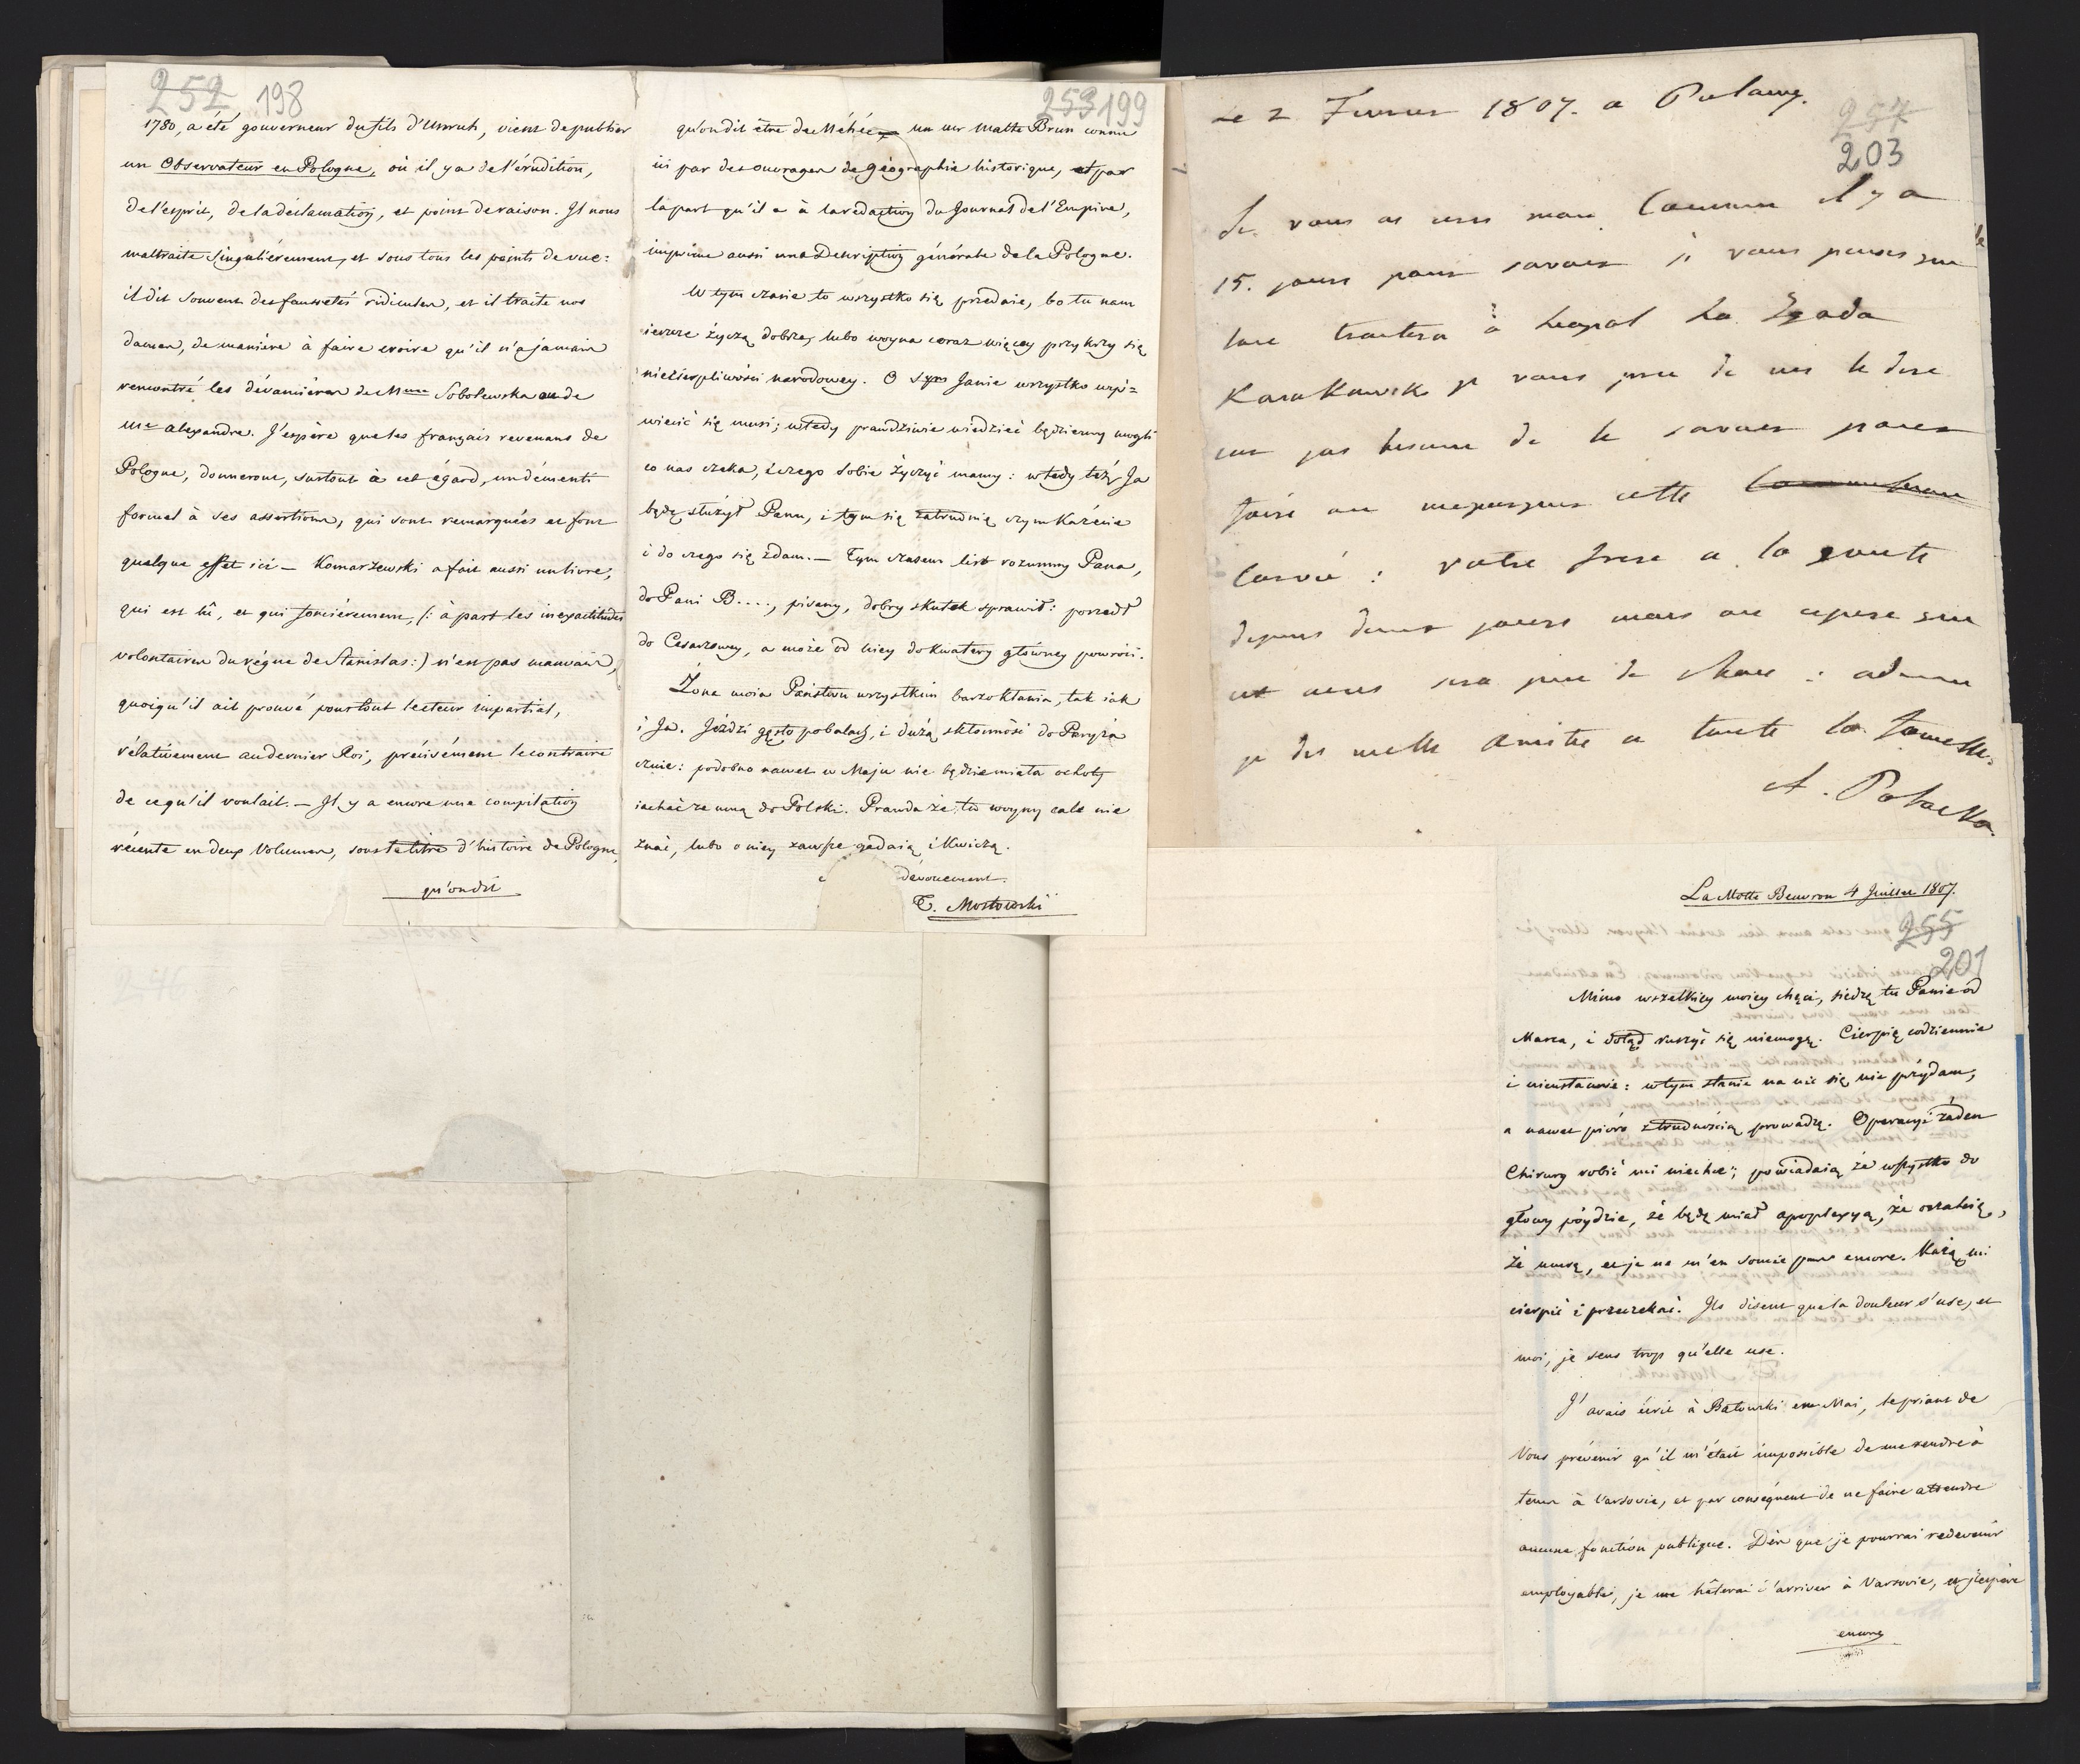 252 198
1780, a été gouverneur du fils d'Unruh, vient de publier
un Observateur en Pologne, où il y a de l'érudition,
de l'esprit, de la déclamation, et point de raison. Il nous
maltraite singulièrement, et sous tous les points de vue:
il dit souvent des faussetés ridicules, et il traite nos
dames, de manière à faire croire qu'il n'a jamais
rencontré les devancières de Mme Sobolewska ou de
Me Alexandre. J'espère que les français revenans de
Pologne, donneront, surtout à cet égard, un démenti
formel à ses assertions, qui sont remarquées et font
quelque effet ici — Komarzewski a fait aussi un livre,
qui est lû, et qui foncièrement, (: à part les inexactitudes
volontaires du règne de Stanislas :) n'est pas mauvais,
quoiqu'il ait prouvé pour tout lecteur impartial,
rélativement au dernier Roi, précisément le contraire
de ce qu'il voulait. — Il y a encore une compilation
récente en deux Volumes, sous le titre d'histoire de Pologne,
qu'on dit
253 199
qu'on dit être de Méhée, un mr Malte Brun connu
ici par des ouvrages de géographie historique, et par
la part qu'il a à la rédaction du Journal de l'Empire,
imprime aussi une Description générale de la Pologne.
W tym czasie to wszystko się przedaie, bo tu nam
ieszcze życzą dobrze, lubo woyna coraz więcey przykrzy się
niecierpliwości narodowey. O Sym Janie wszystko wyś=
wiecić się musi; wtedy prawdziwie wiedzieć będziemy mogli
co nas czeka, i czego sobie życzyć mamy: wtedy też Ja
będę służył Panu, i tym się zatrudnię czym Każecie
i do czego się zdam. — Tym czasem list rozumny Pana,
do Pani B...., pisany, dobry skutek sprawił: poszedł
do Cesarzowey, a może od niey do Kwatery główney powróci.
Żona moia Państwu wszystkim barzo kłania, tak iak
i Ja. Jeździ gęsto po balach, i dużą skłonność do Paryża
czuie: podobno nawet w Maju nie będzie miała ochoty
iachać ze mną do Polski. Prawda że tu woyny cale nie
znać, lubo o niey zawsze gadaią i Kwiczą.
dévouement.
T. Mostowski
Le 2 Fevrier 1807. a Pulawy.
257
203
Je vous ai
il y a
15. jours pour savoir si vous pensez que
je vous prie de me le dire
car j'ai besoin de le savoir pour
faire
cette
corvée : votre frere a la goute
depuis deux jours mais on espere que
ce ne sera pas de chose : adieu
je dis mille amitie a toute la famille.
A. Potocka
La Motte Beuvron 4 Juillet 1807.
255
201
Mimo wszelkiey moiey chęci, siedzę tu Panie od
Marca, i dotąd ruszyć się niemogę. Cierpię codziennie
i nieustannie: w tym stanie na nic się nie przydam,
a nawet pióro z trudnością prowadzę. Operacyi żaden
Chirurg robić mi niechce; powiadaią że wszystko do
głowy póydzie, że będę miał apoplexyą, że oszaleię,
że umrę, et je ne m'en soucie pas encore. Każą mi
cierpić i przeczekać. Ils disent que la douleur s'use, et
moi, je sens trop qu'elle use.
J'avais écrit à Batowski en Mai, le priant de
Vous prévenir qu'il m'était impossible de me rendre à
tems à Varsovie, et par conséquent de ne faire attendre
aucune fonction publique. Dès que je pourrai redevenir
employable, je me hâterai d'arriver à Varsovie, et j'espère
encore